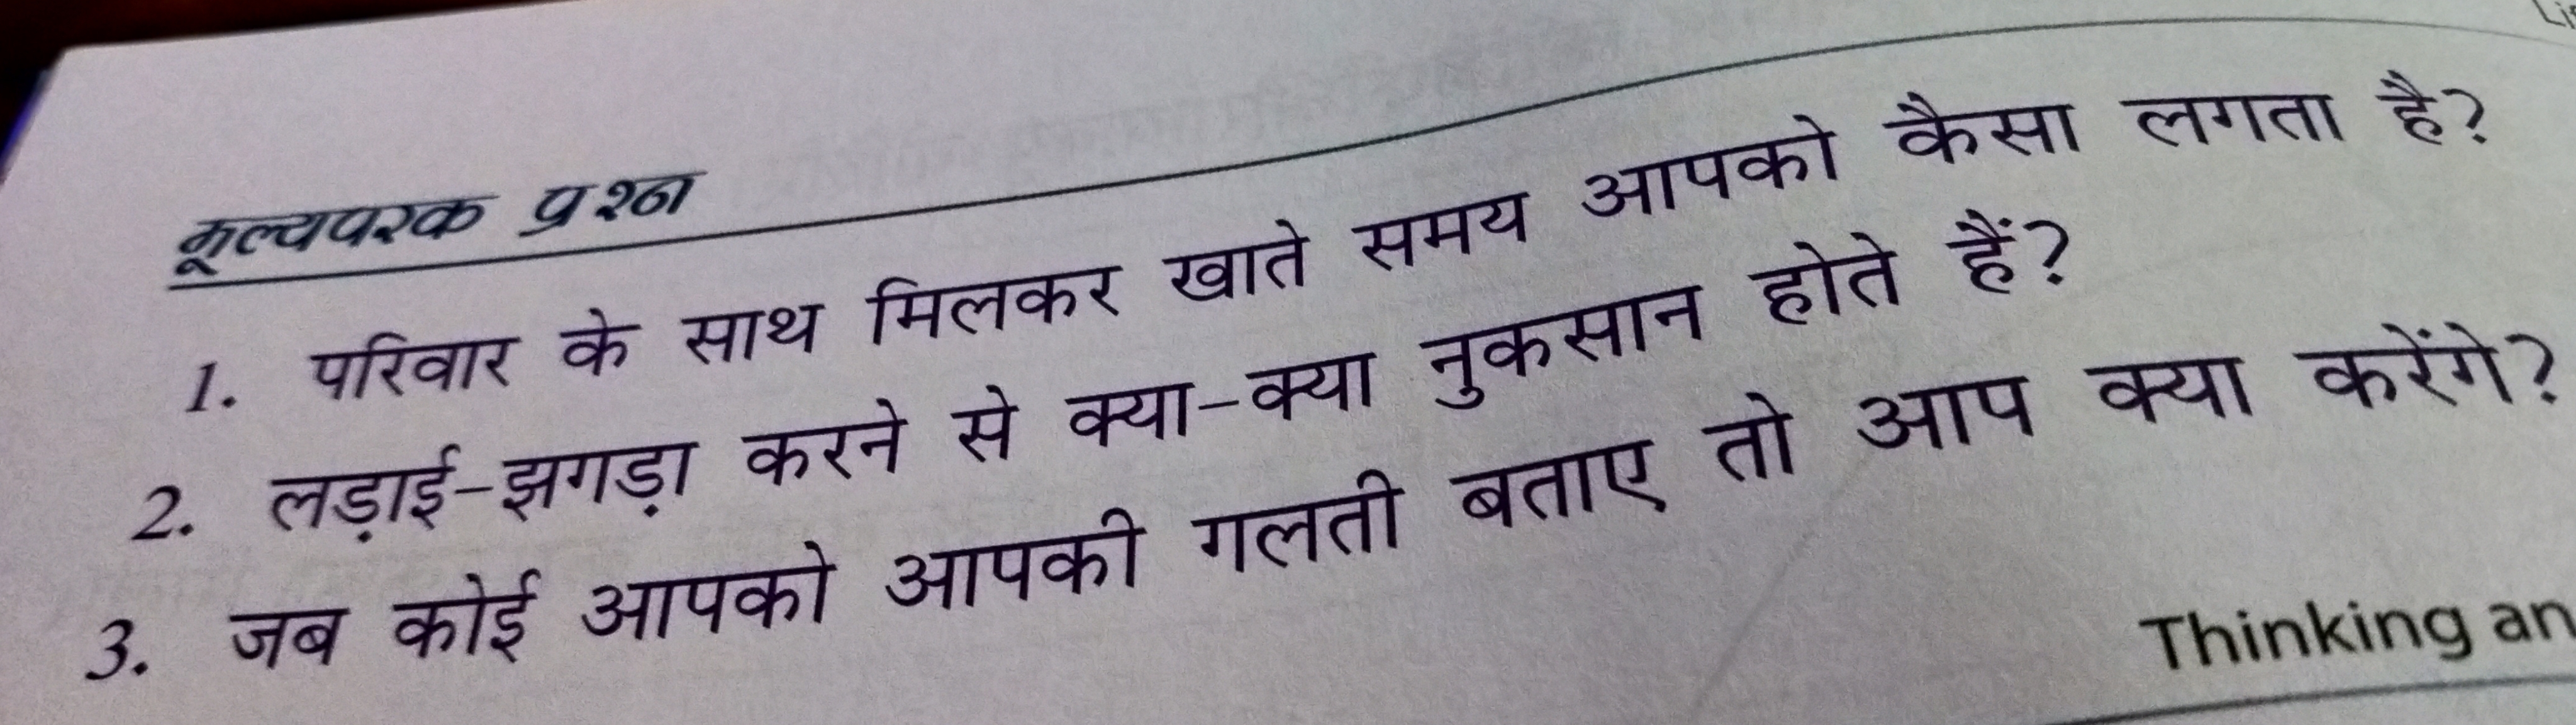 मूल्यपरक प्रश्न
1. परिवार के साथ मिलकर खाते समय आपको कैसा लगता है?
2. लड़ाई-झगड़ा करने से क्या-क्या नुकसान होते हैं?
3. जब कोई आपको आपकी गलती बताए तो आप क्या करेंगे?
Thinking an